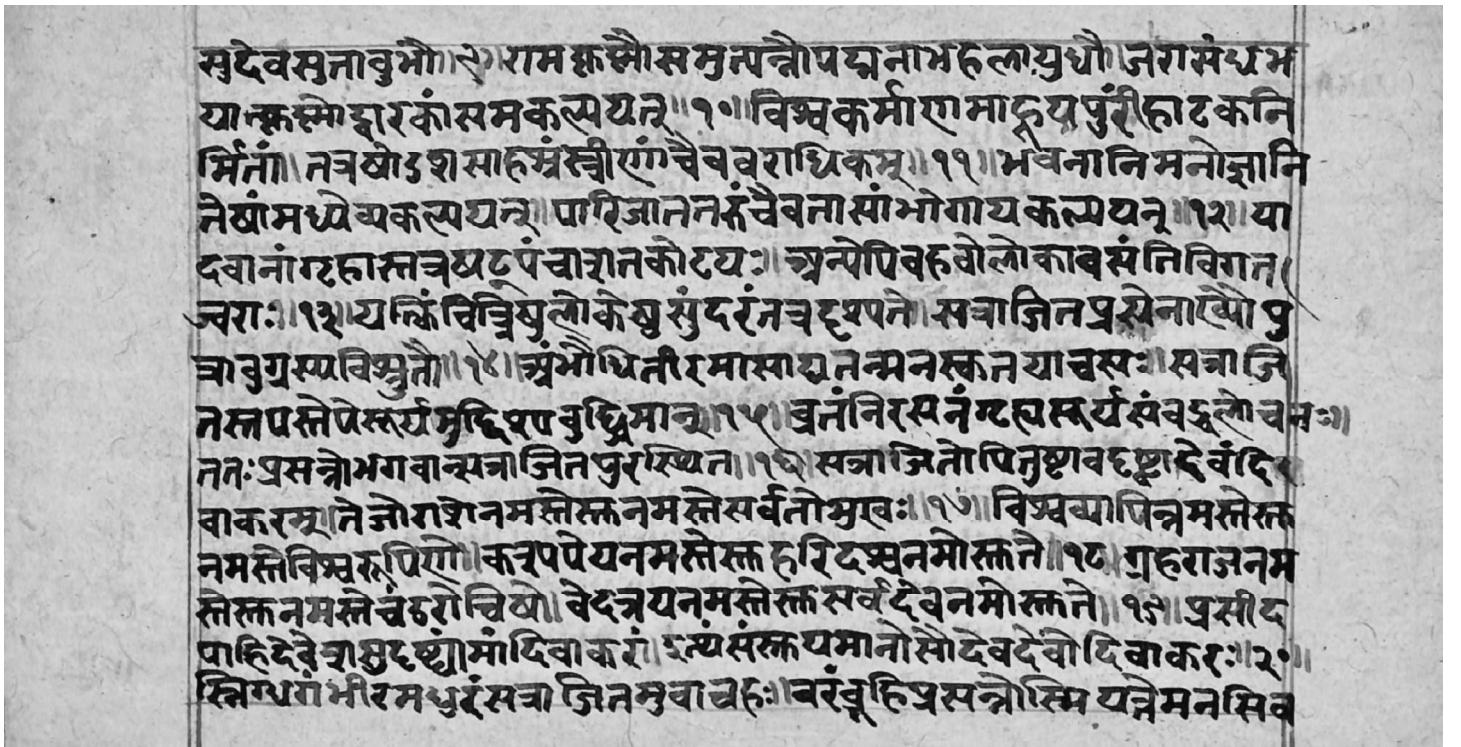 सुदेवसुतावुभौ॥९॥रामकृष्णौसमुत्पन्नौपद्मनाभहलायुधौ॥जरासंधभ
यात्कृष्णोद्वारकांसमकल्पयत्॥१०॥विश्वकर्माणमाहूयपुरींहाटकनि
र्मितां॥तत्रषोडशसाहस्रंस्त्रीणांचैववराधिकम्॥११॥भवनानिमनोज्ञानि
तेषांमध्येव्यकल्पयत्॥पारिजाततरुंचैवतासांभोगायकल्पयत्॥१२॥या
दवानांगृहास्तत्रषट्पंचाशतकोटयः॥अन्येपिवहवोलोकावसंतिविगत
ज्वराः॥१३॥यत्किंचित्रिषुलोकेषुसुंदरंतत्रदृश्यते॥सत्राजितप्रसेनाख्यौपु
त्रावुग्रस्यविश्रुतौ॥१४॥अंभोधितीरमासाद्यतन्मनस्कतयाचसः॥सत्राजि
तस्तपस्तेपेसूर्यमुद्दिश्यबुद्धिमान्॥१५॥व्रतंनिरसनंगृह्यसूर्यसंवद्धलोचनः॥
ततःप्रसन्नोभगवान्सत्राजितपुरस्थित॥१६॥सत्राजितोपितुष्टावदृष्ट्वादेवंदि
वाकरम्॥तेजोराशेनमस्तेस्तुनमस्तेसर्वतोमुखः॥१७॥विश्वव्यापिन्नमस्तेस्तु
नमस्तेविश्वरूपिणे॥कश्यपेयनमस्तेस्तुहरिदश्वनमोस्तुते॥१८॥ग्रहराजनम
स्तेस्तुनमस्तेचंडरोचिषे॥वेदत्रयनमस्तेस्तुसर्वदेवनमोस्तुते॥१९॥प्रसीद
पाहिदेवेशसुदृष्ट्यामांदिवाकरां॥इत्थंसंस्तूयमानोसौदेवदेवोदिवाकरः॥२०॥
स्निग्धगंभीरमधुरंसत्राजितमुवाचहः॥वरंब्रूहिप्रसन्नोस्मियत्तेमनसिव